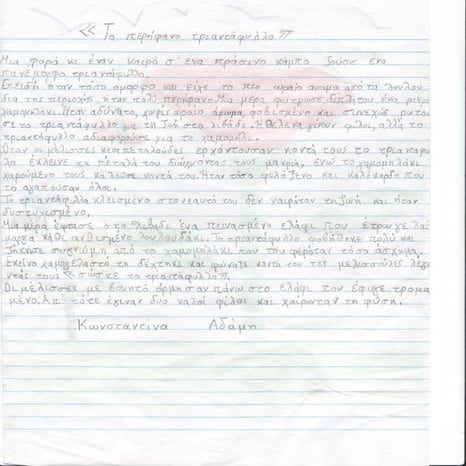 «Το περήφανο τριαντάφυλλο»
Μια φορά κι έναν καιρό σ' ένα πράσινο κάμπο ζούσε ένα
πανέμορφο τριαντάφυλλο.
Επειδή ήταν τόσο όμορφο και είχε το πιο ωραίο άρωμα απ'όλα τα λουλού
δια της περιοχής ήταν πολύ περήφανο. Μια μέρα φύτρωσε δίπλα του ένα μικρό
χαμομηλάκι. Ήταν αδύνατο, χωρίς ωραίο άρωμα, φοβισμένο και συνεχώς ρωτού
σε το τριαντάφυλλο για τη ζωή στο λιβάδι. Ήθελε να γίνουν φίλοι, αλλά το
τριαντάφυλλο αδιαφορούσε για το χαμομήλι.
Όταν οι μέλισσες και οι πεταλούδες ερχόντουσαν κοντά τους το τριαντάφυ
λλο έκλεινε τα πέταλά του διώχνοντας τους μακριά, ενώ το χαμομηλάκι
χαρούμενο τους καλούσε κοντά του. Ήταν τόσο φιλόξενο και καλόκαρδο που
το αγαπούσαν όλοι.
Το τριαντάφυλλο κλεισμένο στον εαυτό του δεν χαιρόταν τη ζωή και ήταν
δυστυχισμένο.
Μια μέρα έφτασε στο λιβάδι ένα πεινασμένο ελάφι που έτρωγε λαί
μαργα κάθε ανθισμένο λουλουδάκι. Το τριαντάφυλλο φοβήθηκε πολύ και
ζήτησε συγνώμη από το χαμομηλάκι που του φερόταν τόσο άσχημα.
Εκείνο χαμογελαστό τη δέχτηκε και φώναξε κοντά του τις μελισσούλες λέγο
ντάς τους «Σώστε το τριαντάφυλλο».
Οι μέλισσες με βουητό όρμησαν πάνω στο ελάφι που έφυγε τρομα
μένο. Απ' τότε έγιναν δυο καλοί φίλοι και χαίρονταν τη φύση.
Κωνσταντίνα Αδάμη